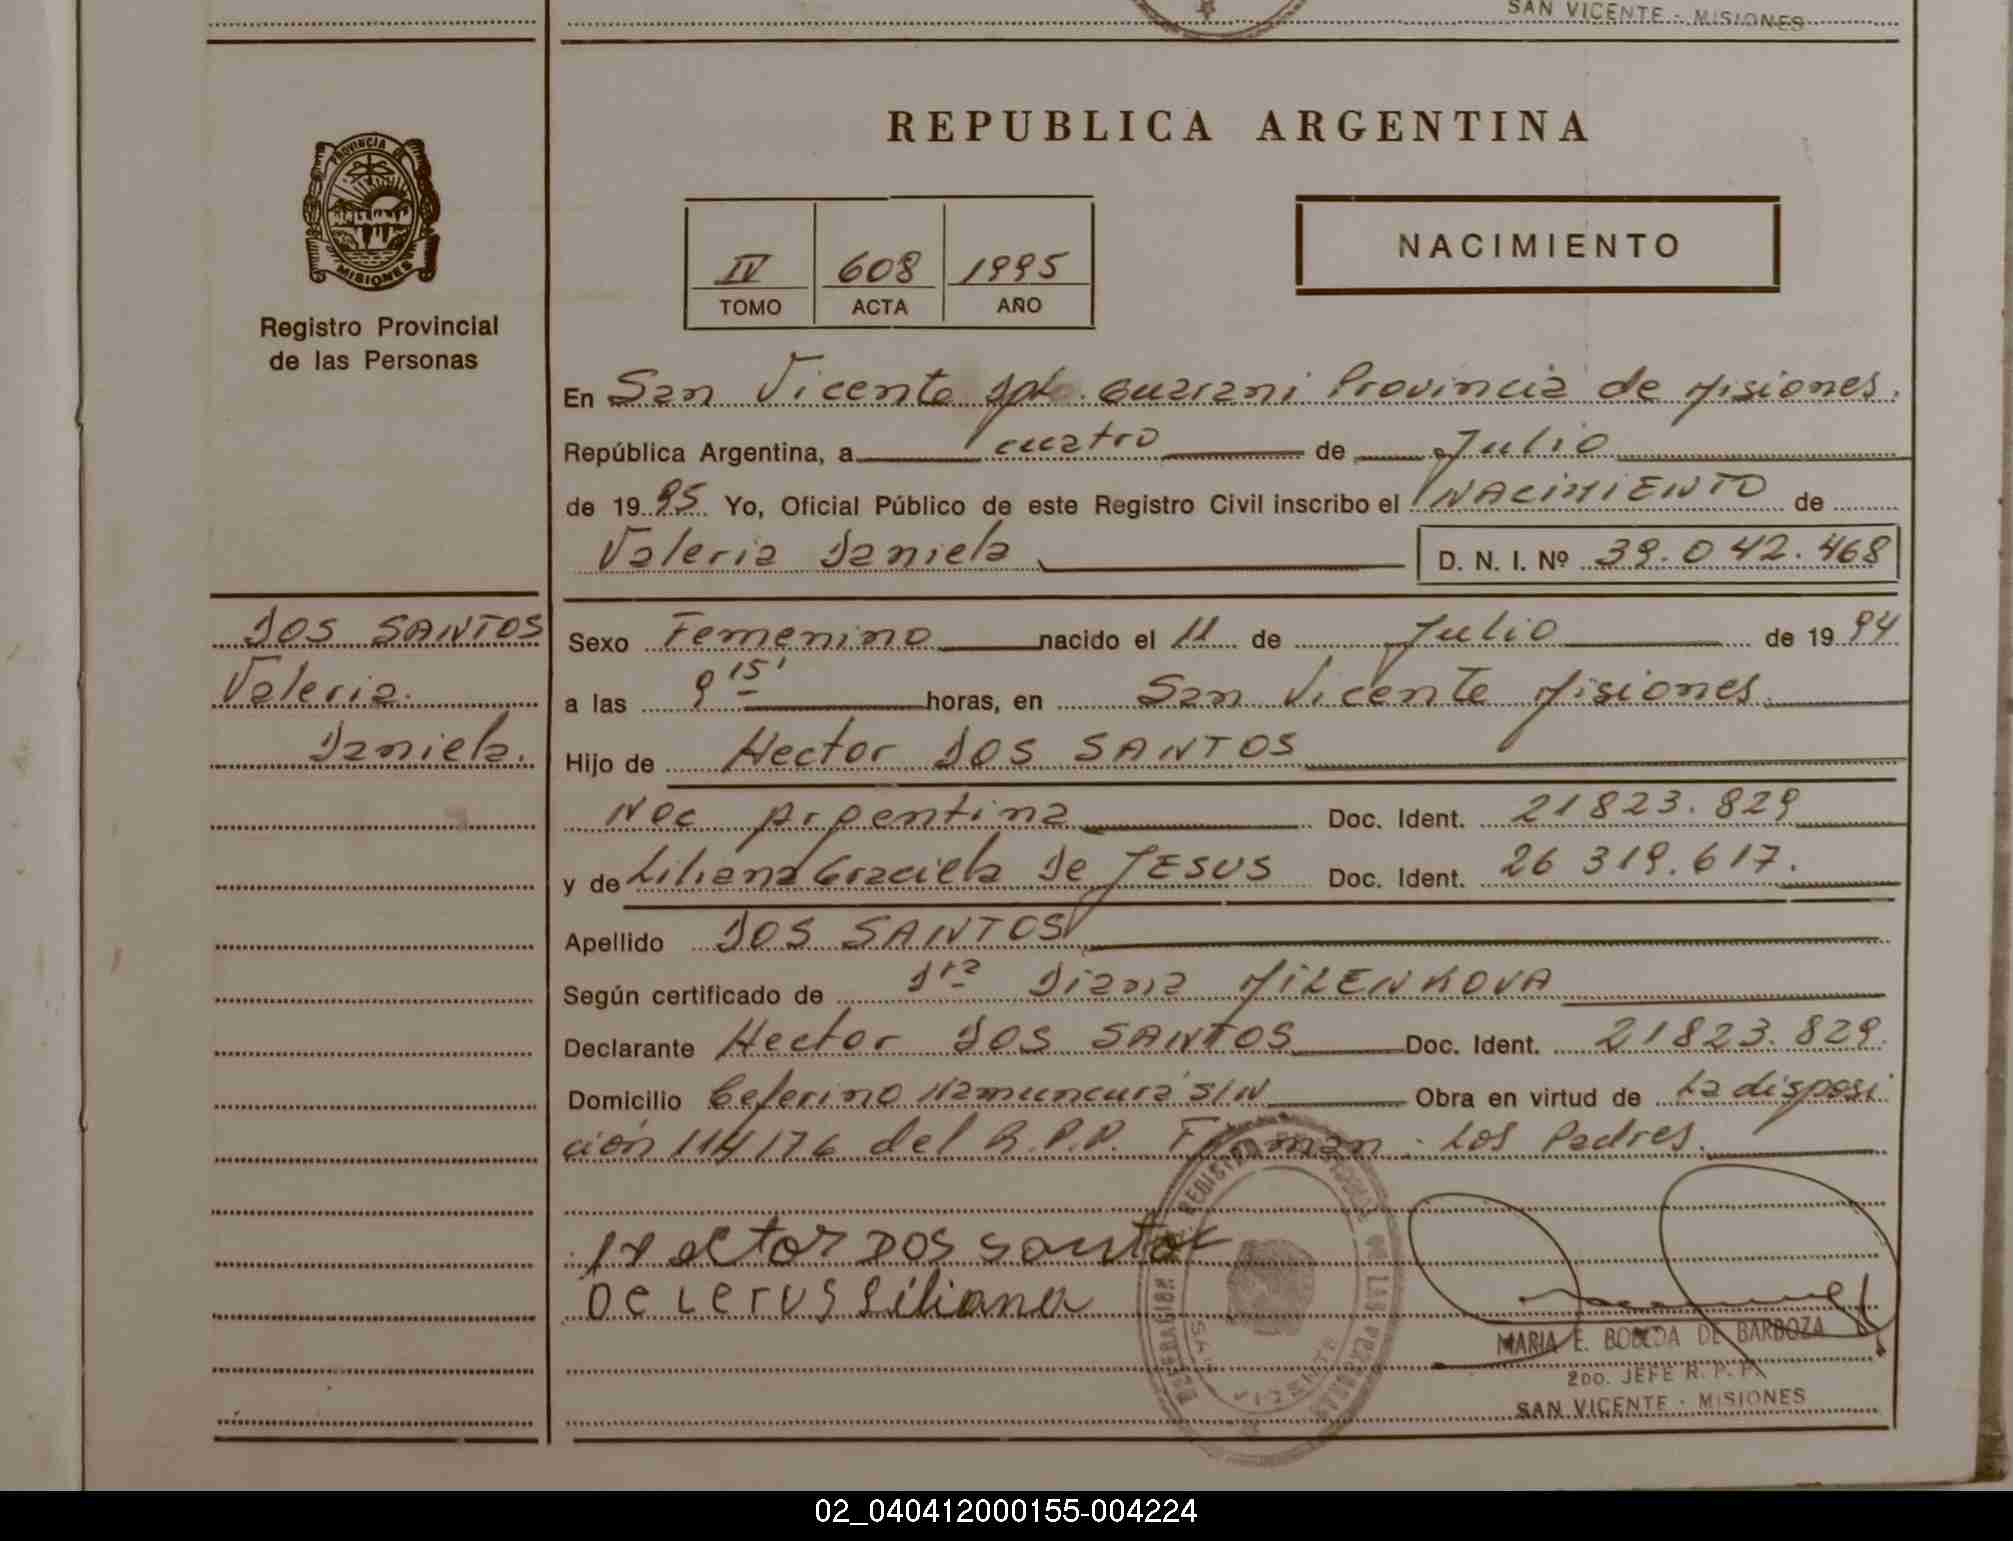 SAN VICENTE - MISIONES
REPUBLICA ARGENTINA
PROVINCIA DE
MISIONES
Registro Provincial
de las Personas
IV 608 1995
TOMO ACTA AÑO
NACIMIENTO
En San Vicente Dpto. Guarani Provincia de Misiones.
República Argentina, a cuatro de Julio
de 1995 Yo, Oficial Público de este Registro Civil inscribo el NACIMIENTO de
Valeria Daniela D. N. I. Nº 39.042.468
DOS SANTOS
Valeria
Daniela.
Sexo Femenino nacido el 11 de Julio de 1994
a las 9 15' horas, en San Vicente Misiones
Hijo de Hector DOS SANTOS
Nac Argentina Doc. Ident. 21823.829
y de Liliana Graciela De JESUS Doc. Ident. 26 319.617.
Apellido DOS SANTOS
Según certificado de Dra Diana MILENKOVA
Declarante Hector DOS SANTOS Doc. Ident. 21823.829.
Domicilio Ceferino Namuncura S/N Obra en virtud de La disposi
ción 114/76 del R.P.P. Firman: Los Padres.
Hector DOS Santos
De Jerus Liliana
MARIA E. BOBEDA DE BARBOZA
2DO. JEFE R. P. P.
SAN VICENTE - MISIONES
02_040412000155-004224